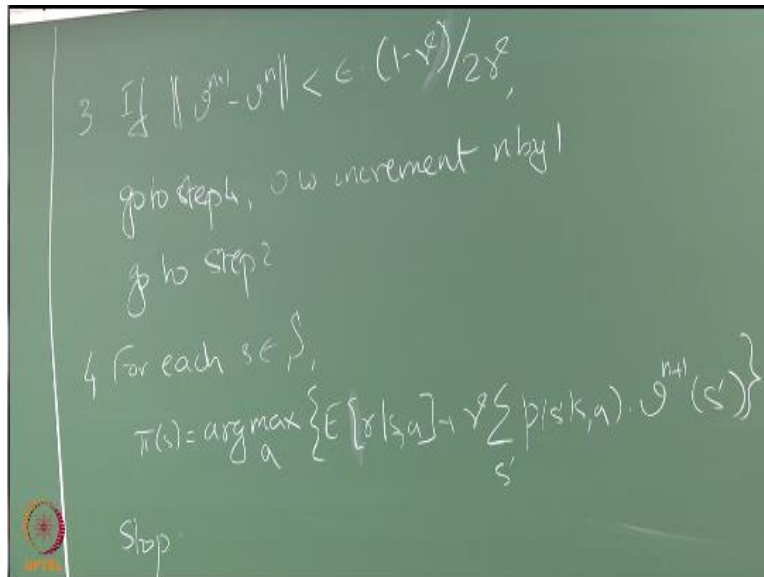 3 If ‖v^{n+1} - v^n‖ < ε · (1-γ)/2γ,
go to step 4, o w increment n by 1
go to step 2
4 For each s ∈ S,
π(s) = argmax_a {E[r|s,a] + γ ∑_{s'} p(s'|s,a) · v^{n+1}(s')}
Stop.
NPTEL